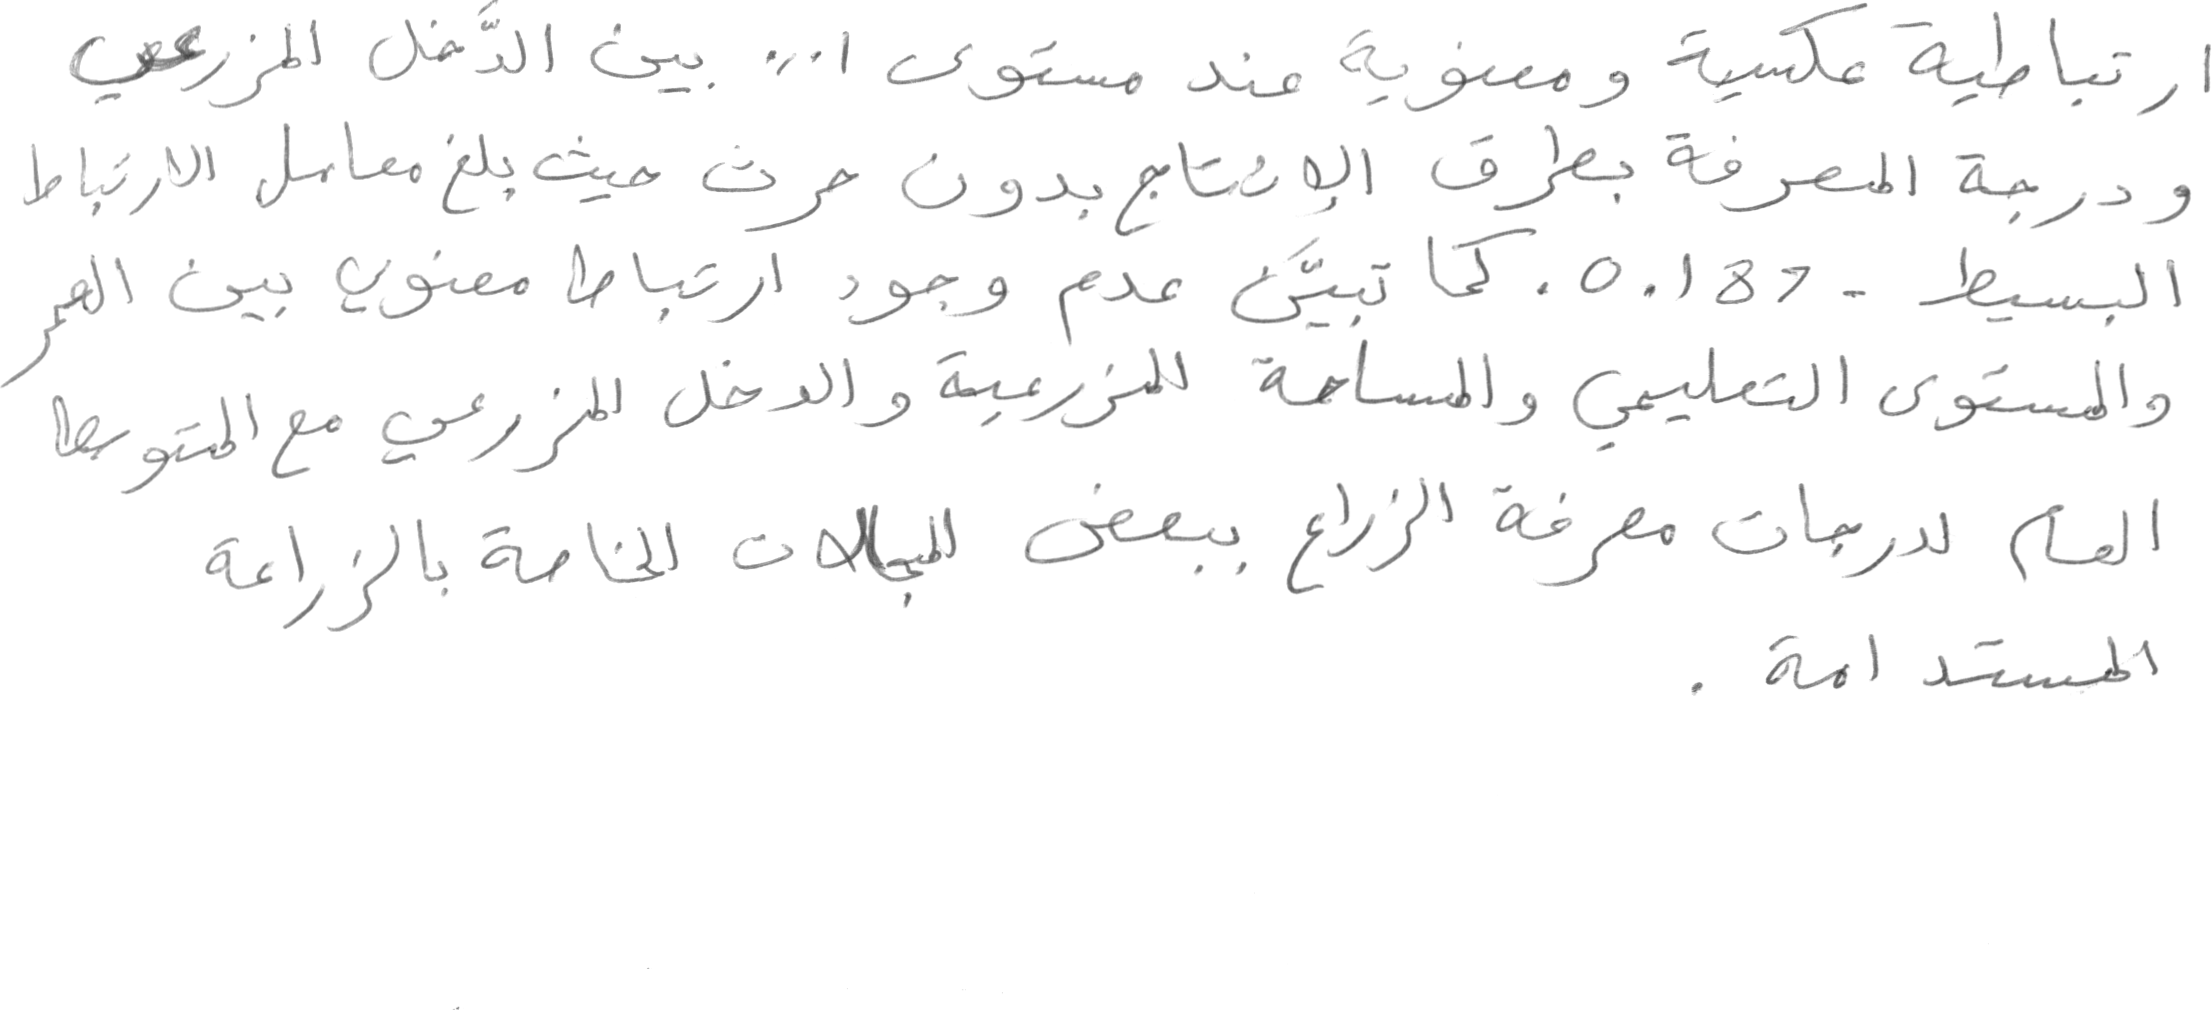 ارتباطية عكسية ومعنوية عند مستوى ٠.٠١ بين الدَّخل المزرعي
ودرجة المعرفة بطرق الإنتاج بدون حرث حيث بلغ معامل الارتباط
البسيط -0.187. كما تبيَّن عدم وجود ارتباط معنوي بين العمر
والمستوى التعليمي والمساحة المزرعية والدخل المزرعي مع المتوسط
العام لدرجات معرفة الزراع ببعض المجالات الخاصة بالزراعة
المستدامة.